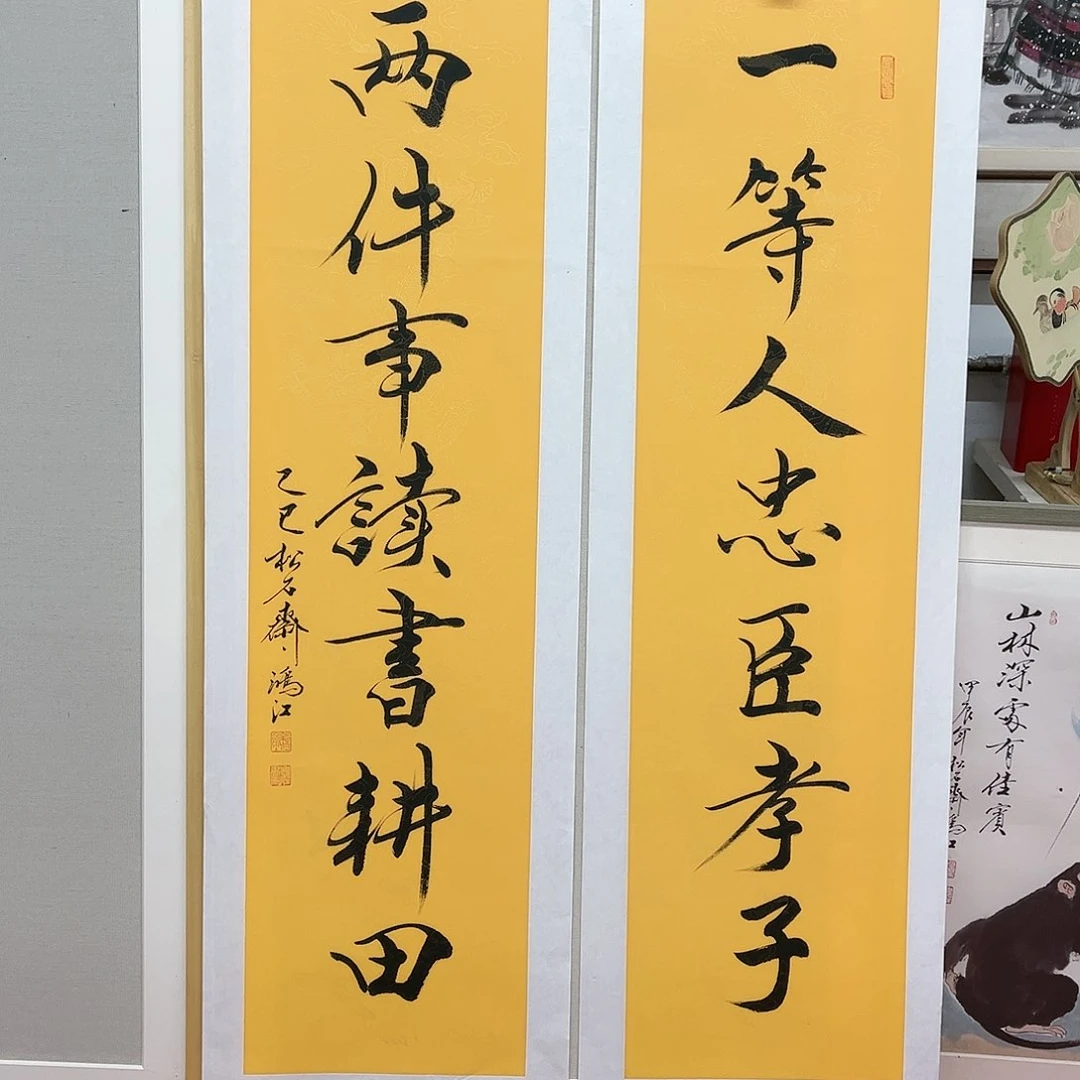 一等人忠臣孝子
两件事讀書耕田
乙巳松石齋鴻江
山林深處有佳賓
甲辰年松石齋鴻江